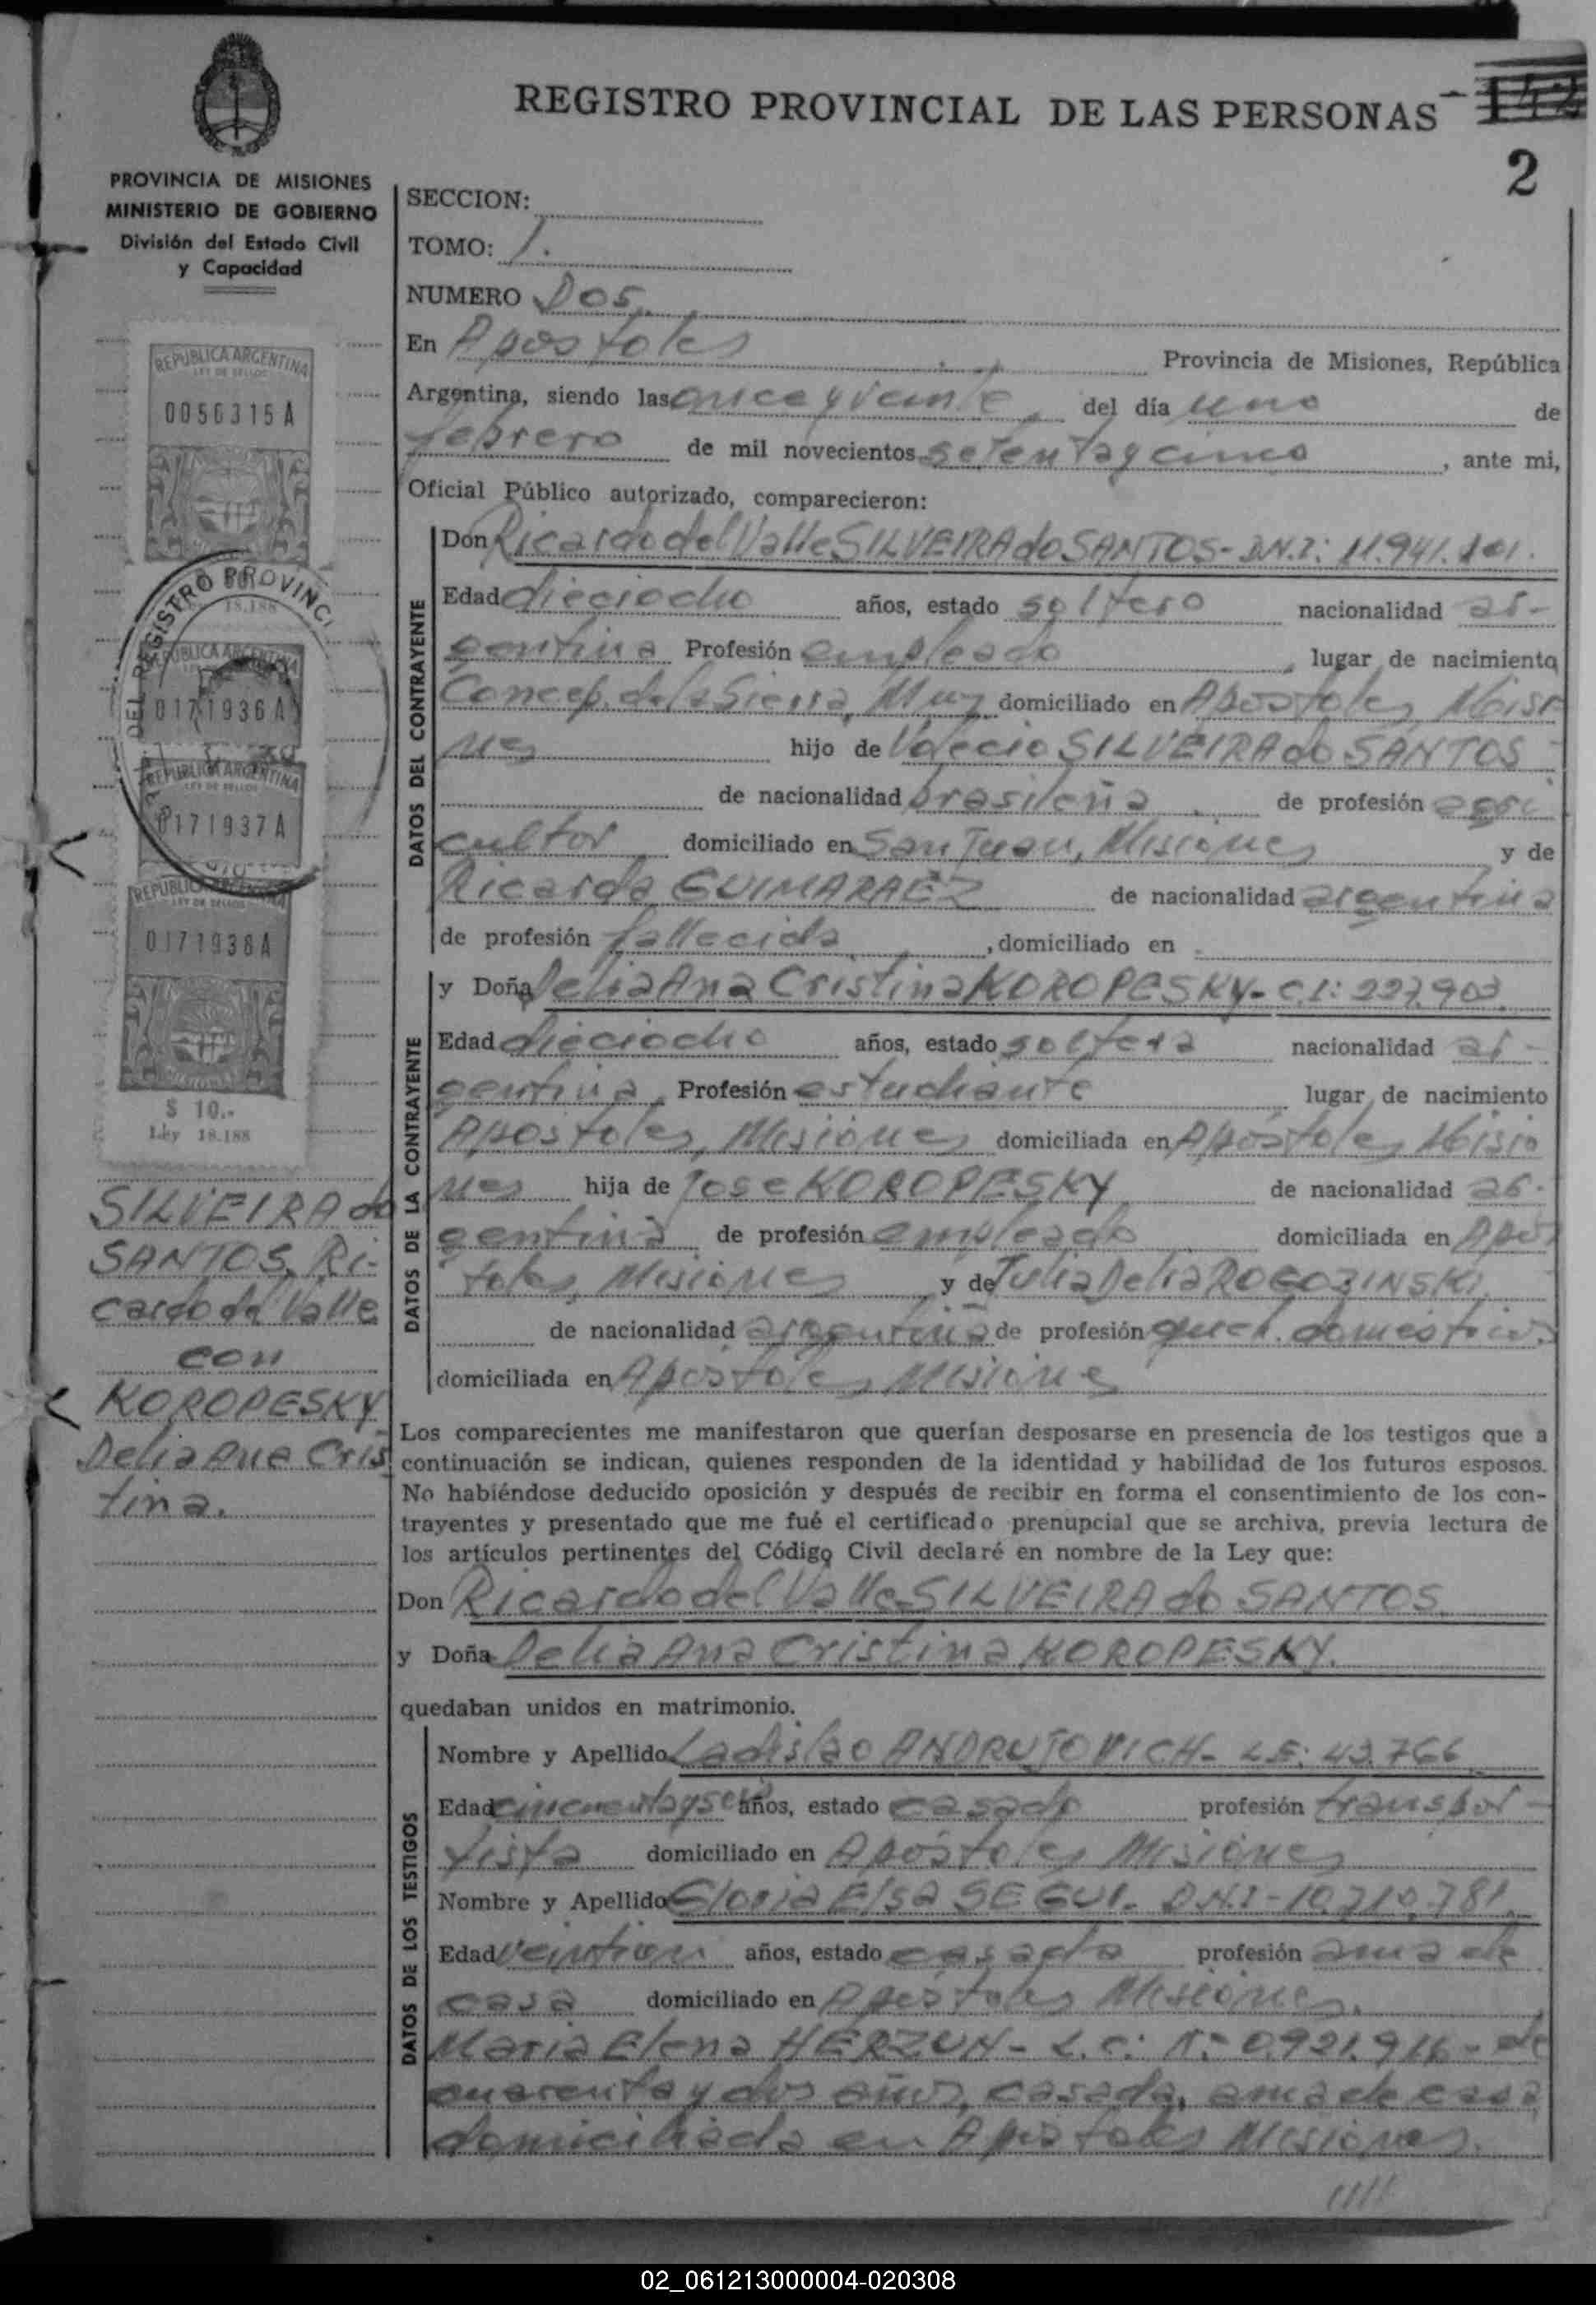 REGISTRO PROVINCIAL DE LAS PERSONAS
2
PROVINCIA DE MISIONES
MINISTERIO DE GOBIERNO
División del Estado Civil
y Capacidad
SECCION:
TOMO: 1.
NUMERO Dos.
En Apostoles, Provincia de Misiones, República
Argentina, siendo las once y veinte, del día uno de
febrero de mil novecientos setenta y cinco, ante mi,
Oficial Público autorizado, comparecieron:
DATOS DEL CONTRAYENTE
Don Ricardo del Valle SILVEIRA do SANTOS - D.N.I: 11.941.101.
Edad dieciocho años, estado soltero nacionalidad ar-
gentina Profesión empleado, lugar de nacimiento
Concep. de la Sierra, domiciliado en Apostoles Misio
nes hijo de SILVEIRA do SANTOS
de nacionalidad brasileña, de profesión agri
cultor domiciliado en San Juan, Misiones y de
Ricarda GUIMARAEZ de nacionalidad argentina
de profesión fallecida, domiciliado en -
DATOS DE LA CONTRAYENTE
y Doña Delia Ana Cristina KOROPESKY - C.I: 227.903
Edad dieciocho años, estado soltera nacionalidad ar-
gentina, Profesión estudiante lugar de nacimiento
Apostoles, Misiones domiciliada en Apostoles Misio
nes hija de Jose KOROPESKY de nacionalidad ar-
gentina de profesión empleado domiciliada en Apos
toles, Misiones y de Julia Delia ROGOZINSKI,
de nacionalidad argentina de profesión queh. domesticos
domiciliada en Apostoles, Misiones
Los comparecientes me manifestaron que querían desposarse en presencia de los testigos que a
continuación se indican, quienes responden de la identidad y habilidad de los futuros esposos.
No habiéndose deducido oposición y después de recibir en forma el consentimiento de los con-
trayentes y presentado que me fué el certificado prenupcial que se archiva, previa lectura de
los artículos pertinentes del Código Civil declaré en nombre de la Ley que:
Don Ricardo del Valle SILVEIRA do SANTOS
y Doña Delia Ana Cristina KOROPESKY.
quedaban unidos en matrimonio.
DATOS DE LOS TESTIGOS
Nombre y Apellido Ladislao ANDRUJOVICH - L.E: 43.766
Edad cincuenta y seis años, estado casado profesión transpor-
tista domiciliado en Apóstoles Misiones
Nombre y Apellido Gloria Elsa SEGUI - D.N.I - 10.210.781
Edad años, estado casada profesión ama de
casa domiciliado en Apostoles Misiones.
Maria Elena HERZUN - L.C: N° 0.921.916 - de
cuarenta y dos años, casada, ama de casa
domiciliada en Apostoles Misiones.
REPUBLICA ARGENTINA
LEY DE SELLOS
0050315A
DEL REGISTRO PROVINCI
18.188
REPUBLICA ARGENTINA
0171936A
REPUBLICA ARGENTINA
LEY DE SELLOS
0171937A
REPUBLICA ARGENTINA
LEY DE SELLOS
0171938A
MISIONES
$ 10.-
Ley 18.188
SILVEIRA do
SANTOS, Ri-
cardo del Valle
con
KOROPESKY
Delia Ana Cris
tina.
02_061213000004-020308